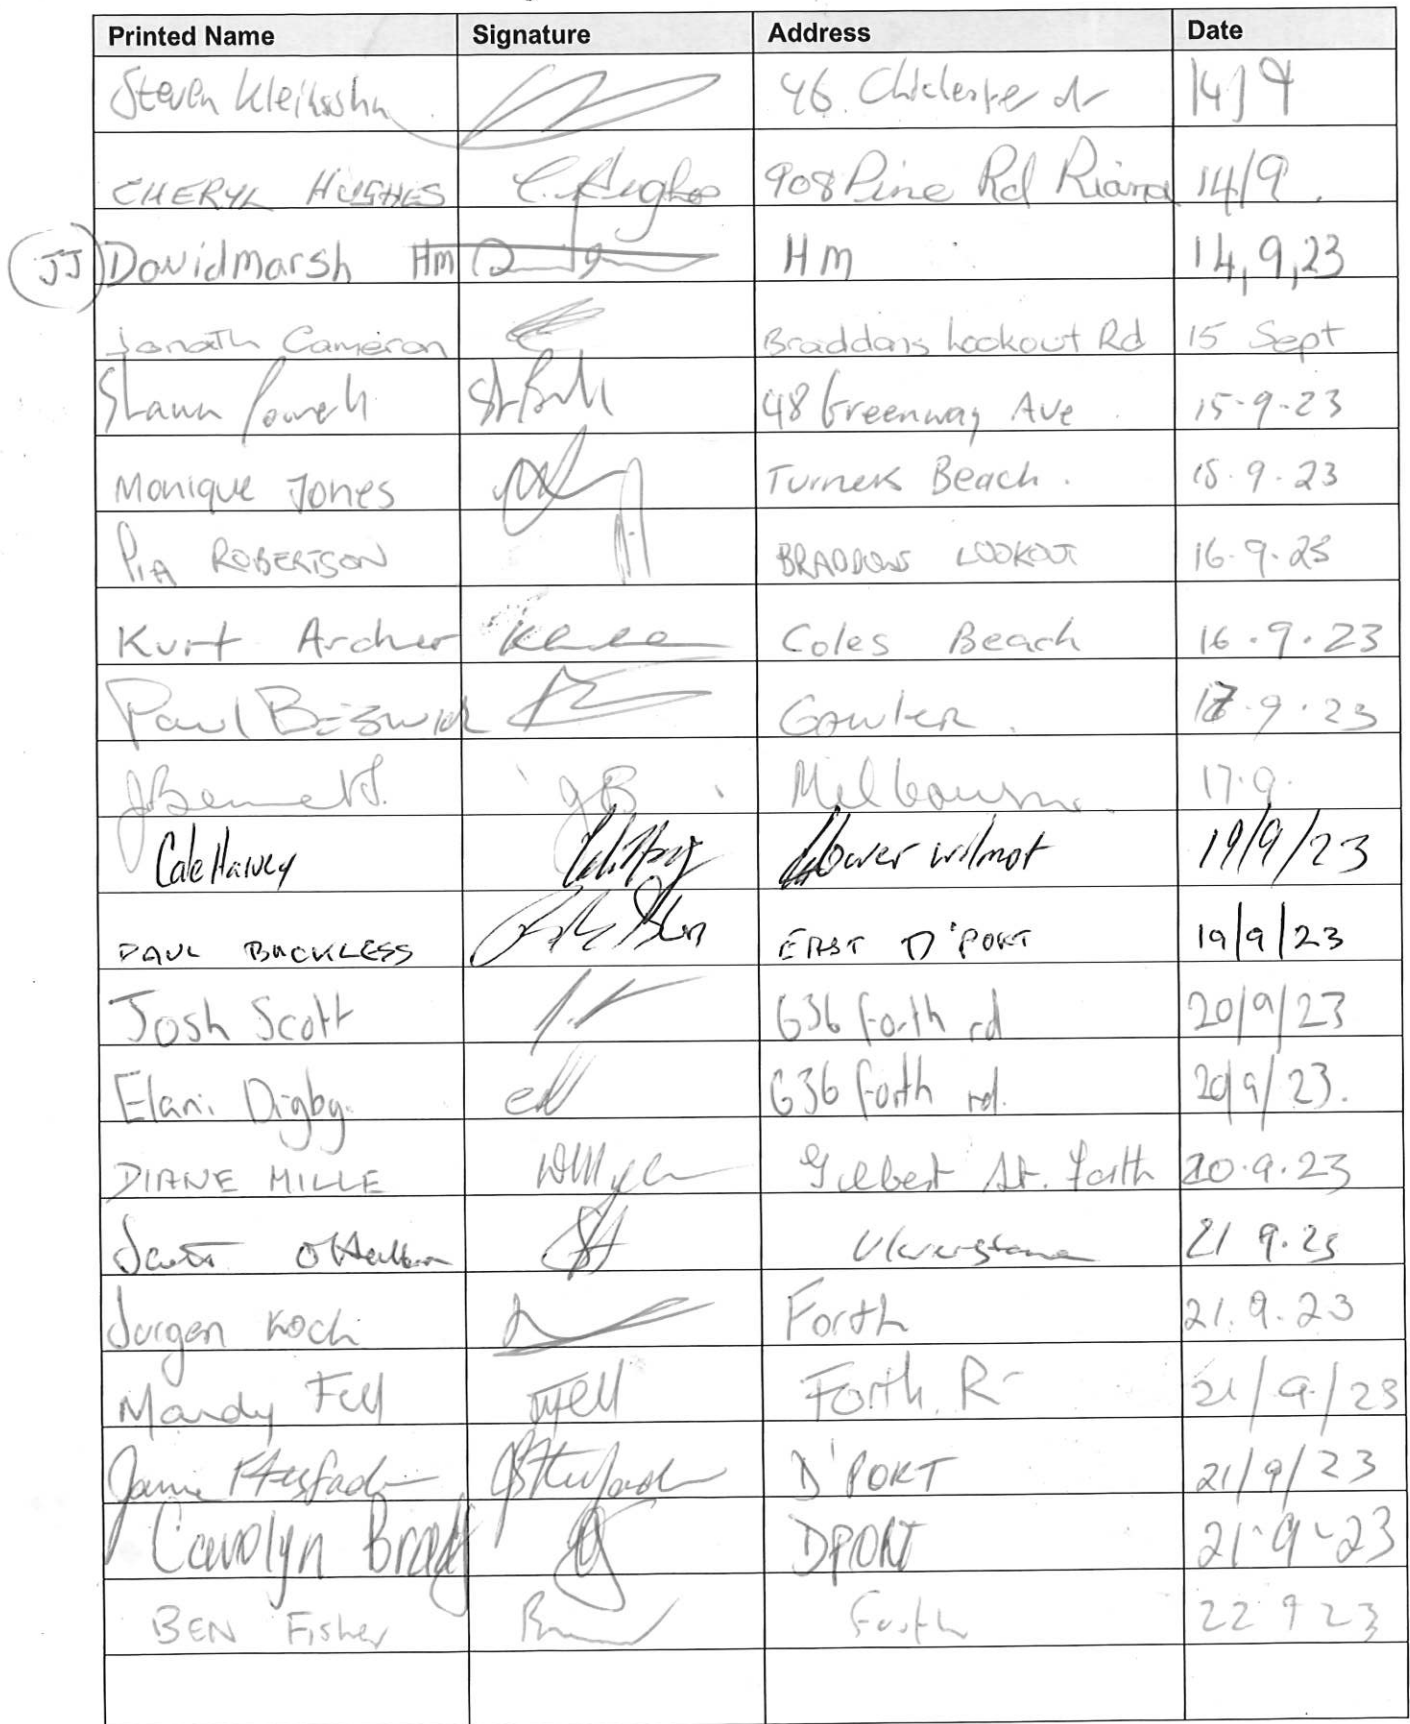 Printed Name Signature Address Date
Steven 46 Chichester dr 14/9
CHERYL HUGHES C. Hughes 908 Pine Rd Riana 14/9.
JJ David marsh Hm Hm 14,9,23
Cameron Braddons Lookout Rd 15 Sept
Shaun Powell 48 Greenway Ave 15-9-23
Monique Jones Turners Beach. 15.9.23
PIA ROBERTSON BRADDONS LOOKOUT 16.9.23
Kurt Archer Coles Beach 16.9.23
Paul BESWICK GAWLER. 9.23
J Bennett. JB Melbourne. 17.9.
Cale Harvey lower wilmot 19/9/23
PAUL BUCKLESS EAST D'PORT 19/9/23
Josh Scott 636 Forth rd 20/9/23
Elani Digby. 636 forth rd. 20/9/23.
DIANE MILLE Gilbert St. Forth 20.9.23
Scott Ulverstone 21 9.23
Jurgen Koch Forth 21.9.23
Mandy Fell MFell Forth R 21/9/23
D'PORT 21/9/23
Carolyn Brady DPORT 21-9-23
BEN Fisher Forth 22 9 23